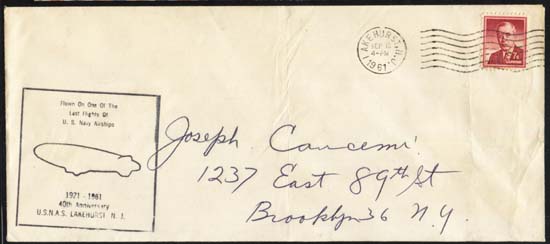 LAKEHURST, N.J.
SEP 15
4-PM
1961
Flown On One Of The
Last Flights Of
U. S. Navy Airships
1921 - 1961
40th Anniversary
U.S.N.A.S. LAKEHURST N. J.
Joseph Cancemi
1237 East 89th St
Brooklyn 36 N.Y.